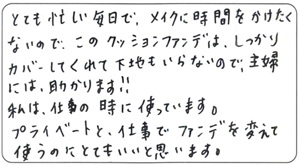 とても忙しい毎日で、メイクに時間をかけたく
ないので、このクッションファンデは、しっかり
カバーしてくれて下地もいらないので、主婦
には、助かります!!
私は、仕事の時に使っています。
プライベートと、仕事でファンデを変えて
使うのにとてもいいと思います。